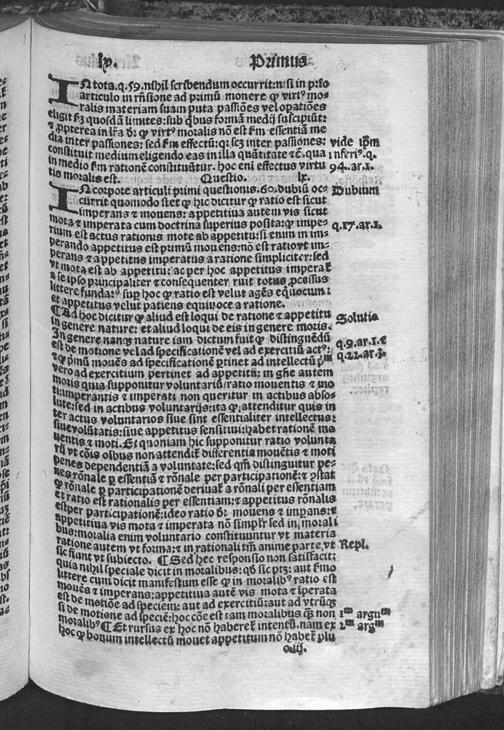 lx. Primus
IN tota.q.59.nihil scribendum occurrit:nisi in p̃o
articulo in rñsione ad primū monere ꝙ virtꝰ mo-
ralis materiam suam puta passiões vel opatiões
eligit ẜm quosdā limites: sub qͥbus formā medij suscipiūt:
⁊ ꝓpterea in lr̃a dr̃ ꝙ virtꝰ moralis nō est ẜm essentiā me
dia inter passiones: sed ẜm effectū: qꝛ sez inter passiones:
constituit medium eligendo eas in illa quātitate ⁊c̃. qua
in medio ẜm rationē constituātur. hoc eni effectus virtu
tis moralis est. Questio. lx.
vide ip̃m
inferiꝰ.q.
94.ar.1.
IN corpore articuli primi questionis.60.dubiū oc-
currit quomodo stet ꝙ hic dicitur ꝙ ratio est sicut
imperans ⁊ mouens: appetitius autem vis sicut
mota ⁊ imperata cum doctrina superius posita: ꝙ impe-
rium est actus rationis mote ab appetitu: si enim in im-
perando appetitus est primū mouens: nō est ratio vt im-
perans ⁊ appetitus imperatus a ratione simpliciter: sed
vt mota est ab appetitu: ac per hoc appetitus imperat̃
a se ipso principaliter ⁊ consequenter ruit totus ꝓcessus
littere fundatꝰ sup hoc ꝙ ratio est velut agẽs equocum:
et appetitus velut patiens equiuoce a ratione.
Dubium
q.17.ar.1.
¶ Ad hoc dicitur ꝙ aliud est loqui de ratione ⁊ appetitu
in genere nature: et aliud loqui de eis in genere moris.
In genere nanqꝫ nature iam dictum fuit ꝙ distinguēdū
est de motione vel ad specificationē vel ad exercitiū actꝰ:
⁊ ꝙ pͥmū mouēs ad specificationē ꝑtinet ad intellectū pͥm
vero ad exercitium pertinet ad appetitū: in gñe autem
moris quia supponitur voluntariū/ratio mouentis ⁊ mo
ti: imperantis ⁊ imperati non queritur in actibus abso-
lute: sed in actibus voluntarijs: ita ꝙ: attenditur quis in
ter actus voluntarios siue sint essentialiter intellectus:
siue volūtatis: siue appetitus sensitiui: habet rationē mo
uentis ⁊ moti.
Solutio
q.9.ar.1.⁊
Et quoniam hic supponitur ratio volunta
rij vt cōis oībus non attendit̃ differentia mouētis ⁊ moti
penes dependentiā a voluntate: sed qm̃ distinguitur pe-
nes rōnale ꝑ essentiā ⁊ rōnale per participationē: ⁊ ꝯstat
ꝙ rōnale ꝑ participationē deriuat̃ a rōnali per essentiam
et ratio est rationalis per essentiam: ⁊ appetitus rōnalis
est per participationē: ideo ratio dr̃ mouens ⁊ impans: ⁊
appetitiua vis mota ⁊ imperata nō simplr̃ sed in morali
bus: moralia enim voluntario constituuntur vt materia
ratione autem vt forma: ⁊ in rationali tm̃ anime parte vt
sic fiant vt subiecto. ¶ Sed hec responsio non satisfacit:
Repl.
quia nihil speciale dicit in moralibus: qđ sic ptꝫ: aut ẜmo
littere cum dicit manifestum esse ꝙ in moralibꝰ ratio est
mouēs ⁊ imperans: appetitiua autē vis mota ⁊ iperata
est de motiōe ad speciem: aut ad exercitiū: aut ad vtrūqꝫ
si de motione ad speciē: hoc cōe est tam moralibus qꝫ non
moralibꝰ ¶ Et rursus ex hoc nō haberet̃ intentū. nam ex
hoc ꝙ bonum intellectū mouet appetitum nō habet̃ plꝰ
1ᵐ argūᵐ
2ᵐ argᵐ